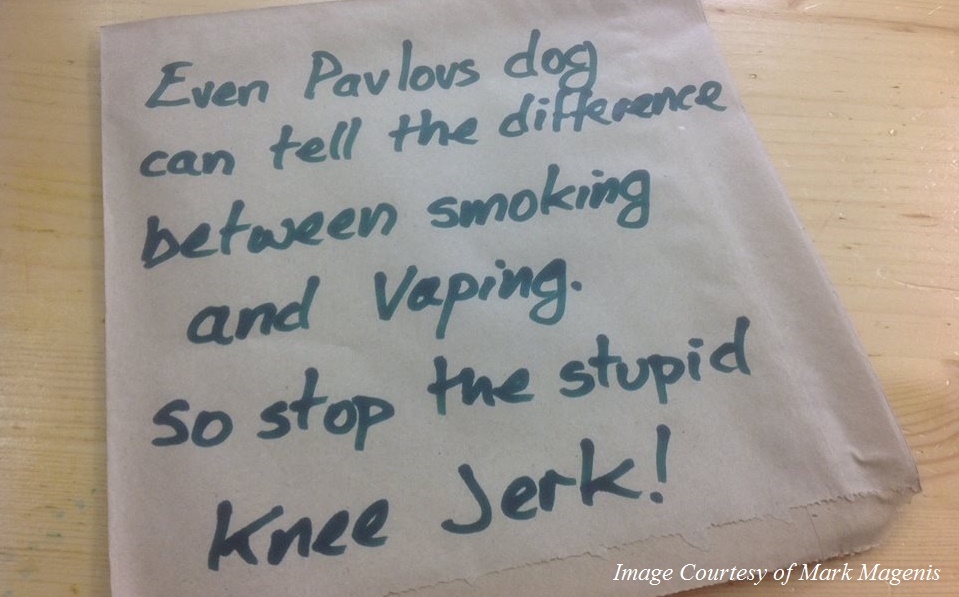 Even Pavlovs dog
can tell the difference
between smoking
and Vaping.
so stop the stupid
Knee Jerk!
Image Courtesy of Mark Magenis